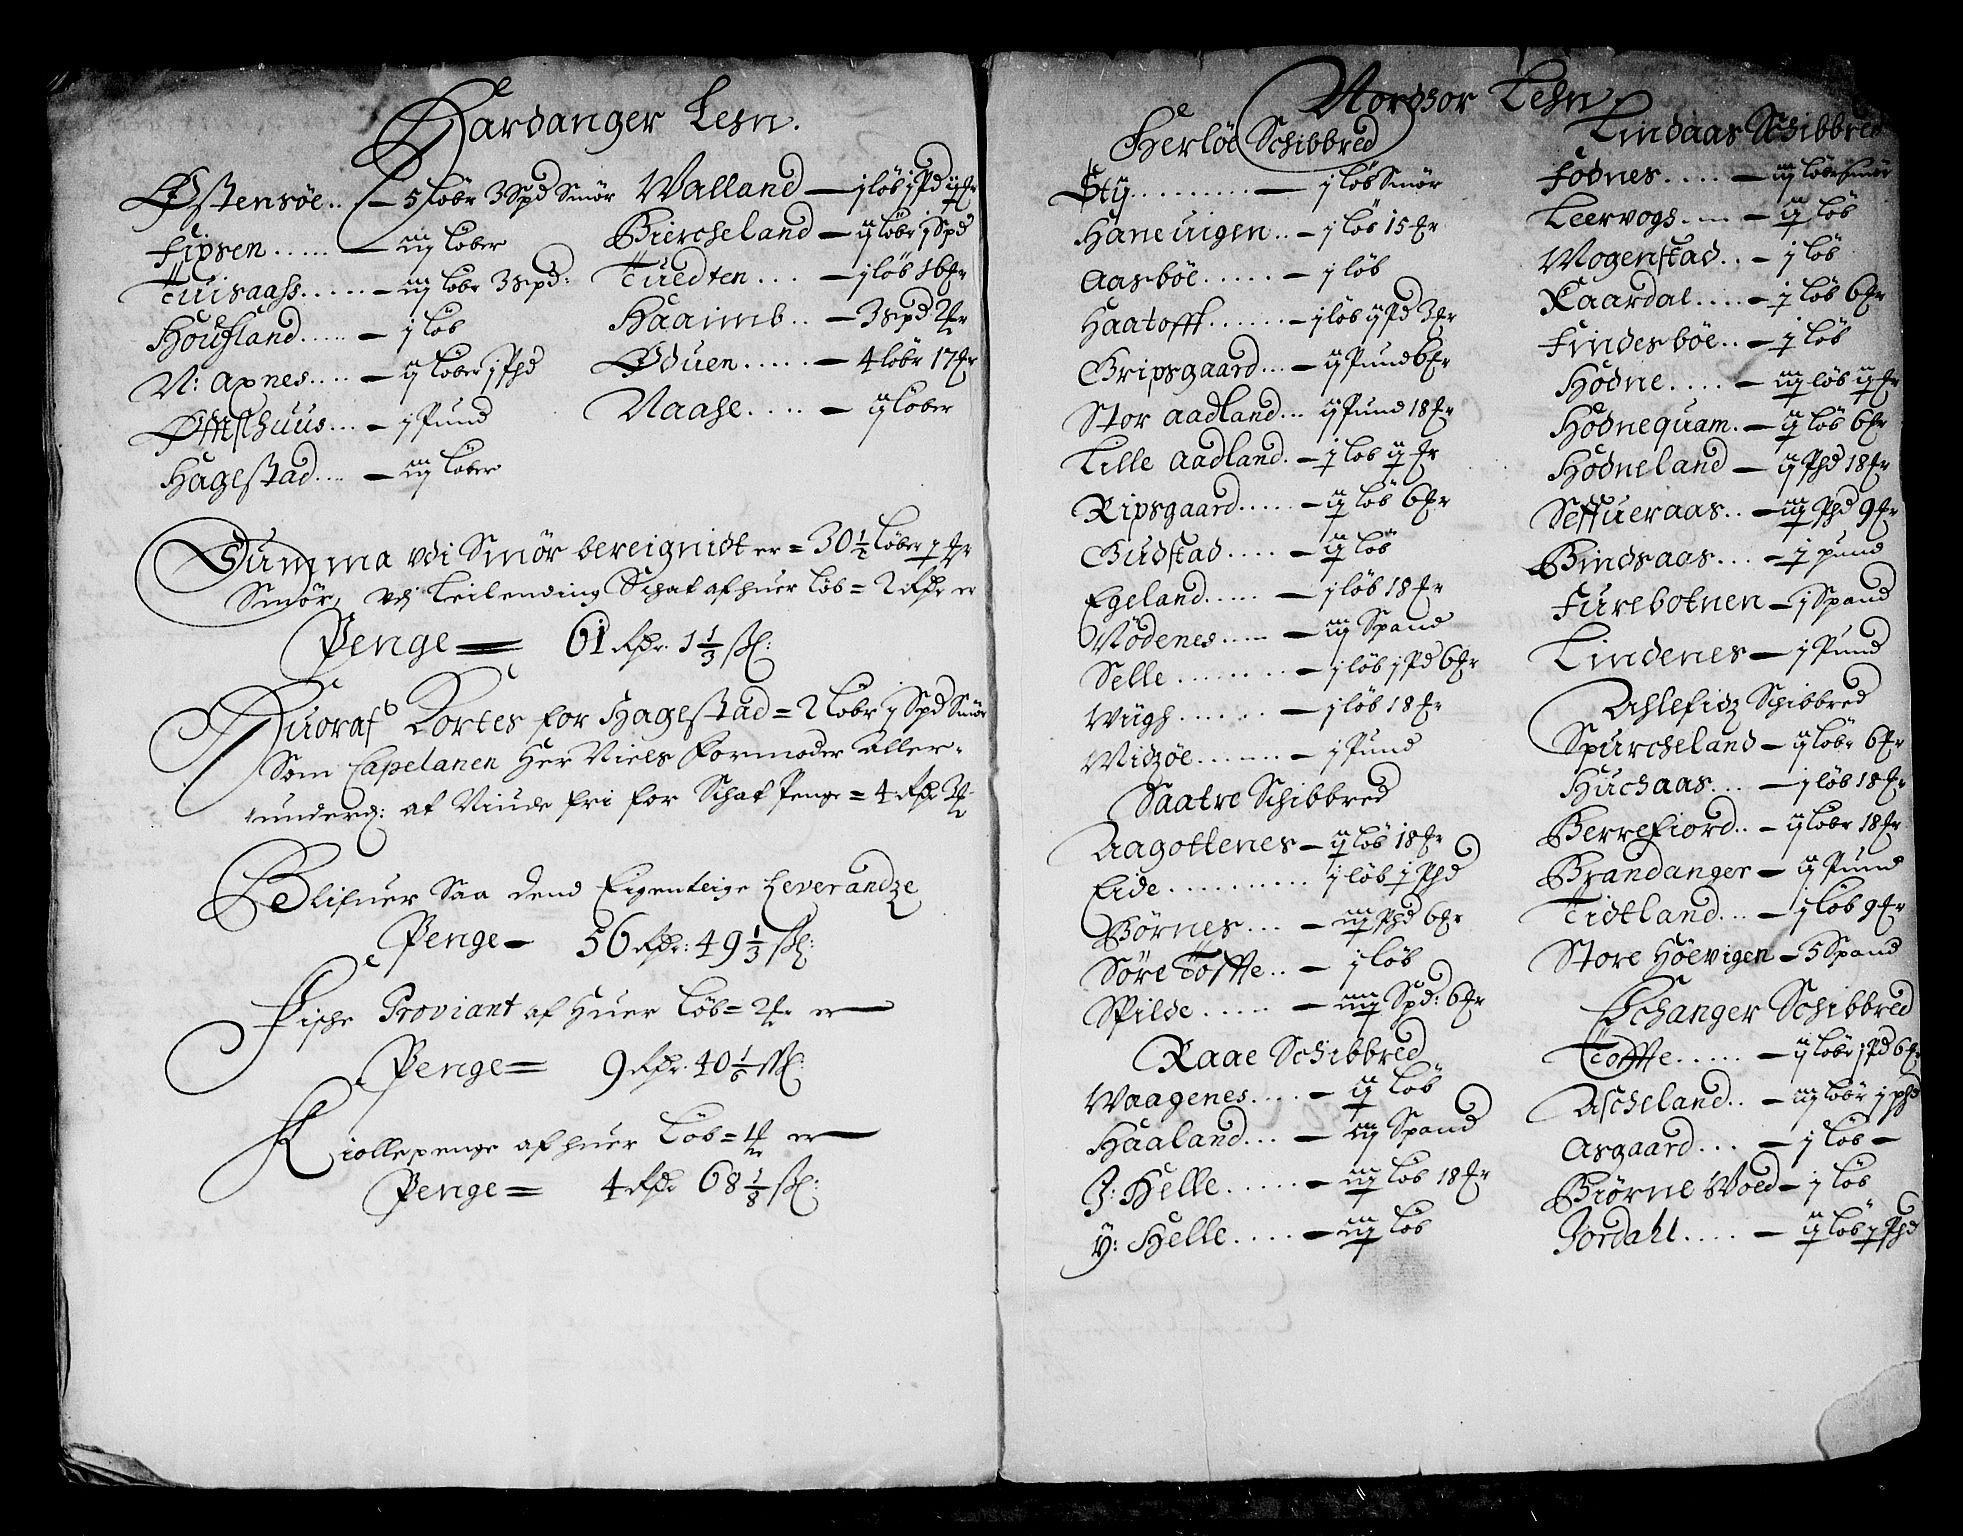 Hardanger Lehn.
Østensøe.. – 5 løbr 3 Spd Smør
Fipsen...... – iij Løber
Tuisaahs...... – iij løbr 3 spd:
Houfland..... – j løb
N: Axnes.... – ij Løber j Phd
Omschuus... – j Pund
Hagestad.... – iij Løber
Walland – j løb j Pd ij mr
Biercheland – ij løbr j Spd
Tuedten.... – j løb 16 mr
Haaimb.. – 3 spd 2 mr
Oduen...... – 4 løbr 17 mr
Naahe.... – ij løber
Summa vdi Smør bereignidt er = 30 ½ Løber
Smør, vdj Leilending Schat af huer Løb = 2 Rdr er
Penge = 61 Rdr. 1 1/3 ß:
Huoraf Kortes for Hagestad = 2 Løbr j Spd Smør
Som Capelanen Her Niels Formoder Aller-
underd: at Niude fri for Schat Penge = 4 Rdr
Blifuer Saa dend Eigentlige Leverandze
Penge – 56 Rdr: 49 1/3 ß:
Fische Proviant af Huer Løb = 2 er
Penge = 9 Rdr. 40 1/6 ß:
Kiøllepenge af huer Løb = er
Penge = 4 Rdr 68 1/8 ß:
Nordhor Lehn.
Herløe Schibbred
Sty.......... – j løb Smør
Haneuigen.. – j løb 15 mr
Aasbøe...... – j løb
Haatofft....... – j løb ij Pd 3 mr
Gripsgaard... – ij Pund 6 mr
Stor Aadland... ij Pund 18 mr
Lille Aadland. – j Løb ij mr
Ripsgaard...... – ij Løb 6 mr
Gudstad.... – ij løb
Egeland..... – j løb 18 mr
Nødenes..... – iij Spand
Selle........ – j løb j Pd 6 mr
Wügh...... – j løb 18 mr
Widzøe....... – j Pund
Saatre Schibbred
Aagottenes – ij løb 18 mr
Eide........... j løb j Phd
Børnes.... – iij Phd 6 mr
Søre Toffte.. – j løb
Spilde..... – iiij Spd: 6 mr
Raae Schibbred
Waagenes.... – ij Løb
Haaland... – iij Spand
J: Helle...... – iij løb 18 mr
Y: Helle.... – iij løb
Lindaas Schibbred
Fodnes..... – iij løbr Smør
Leervogs.... – ij løb
Wogenstad.. – j løb
Raardal.... – j løb 6 mr
Findesbøe.. – j løb
Hodne.... – iij løb ij mr
Hodnequam. – ij løb 6 mr
Hodneland – ij Phd 18 mr
Seffueraas.. – iij Phd 9 mr
Bindsaas... – j pund
Furebotnen – j Spand
Lindenes – j Pund
Ahlefidz Schibbred
Spurcheland – ij løbr 6 mr
Huchaas... – j løb 18 mr
Berrefiord.. – ij løbr 18 mr
Brandanger – ij Pund
Tidtland... – j løb 9 mr
Store Høevigen – 5 Spand
Echanger Schibbred
Tofftte..... – ij løbr j Pd 6 mr
Ascheland.. – iij løbr j phd
Asgaard... – j løb –
Biørne Woed – j løb
Jordahl.... – ij løb j Phd